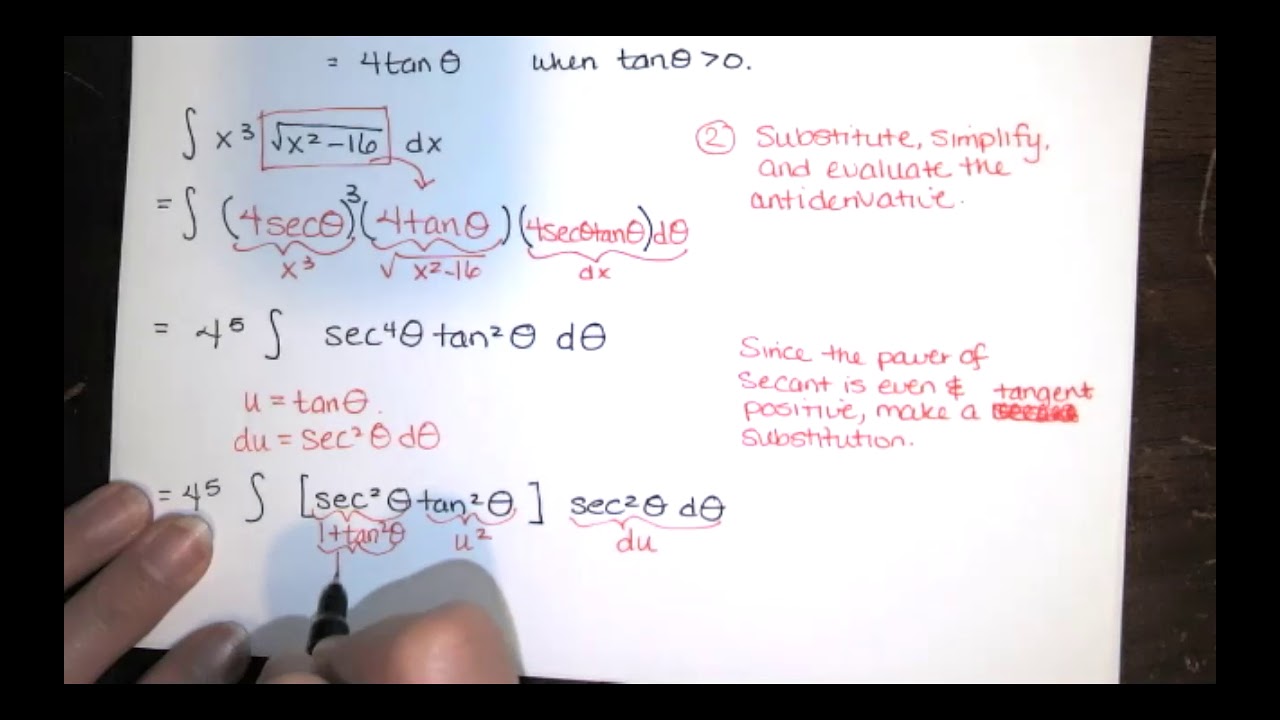 = 4tanθ when tanθ > 0.
∫ x³ √x²-16 dx
= ∫ (4secθ)³(4tanθ)(4secθtanθ)dθ
x³ √x²-16 dx
② Substitute, simplify,
and evaluate the
antiderivative.
= 4⁵ ∫ sec⁴θ tan²θ dθ
u = tanθ.
du = sec²θ dθ
Since the power of
secant is even & tangent
positive, make a
substitution.
= 4⁵ ∫ [sec²θ tan²θ] sec²θ dθ
1+tan²θ u² du